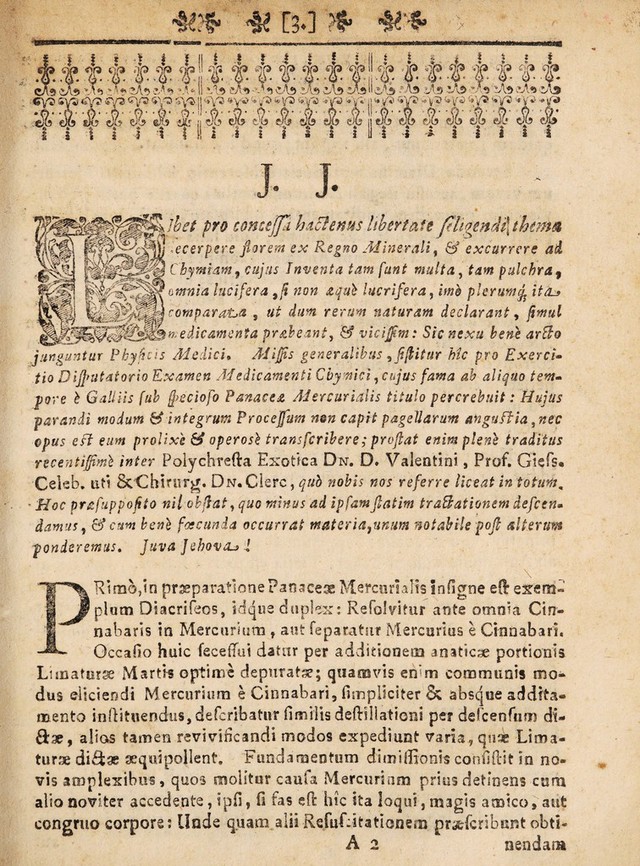 [3.]
J. J.
LIbet pro concessâ hactenus libertate seligendi thema
decerpere florem ex Regno Minerali, & excurrere ad
Chymiam, cujus Inventa tam sunt multa, tam pulchra,
omnia lucifera, si non æquè lucrifera, imò plerumq; ita
comparata, ut dum rerum naturam declarant, simul
medicamenta præbeant, & vicissim: Sic nexu benè arcto
junguntur Physicis Medici. Missis generalibus, sistitur hîc pro Exerci-
tio Disputatorio Examen Medicamenti Chymici, cujus fama ab aliquo tem-
pore è Galliis sub specioso Panaceæ Mercurialis titulo percrebuit: Hujus
parandi modum & integrum Processum non capit pagellarum angustia, nec
opus est eum prolixè & operosè transcribere; prostat enim plenè traditus
recentissimè inter Polychresta Exotica DN. D. Valentini, Prof. Giess.
Celeb. uti & Chirurg. DN. Clerc, quò nobis nos referre liceat in totum.
Hoc præsupposito nil obstat, quo minus ad ipsam statim tractationem descen-
damus, & cum benè fœcunda occurrat materia, unum notabile post alterum
ponderemus. Juva Jehova!
PRimò, in præparatione Panaceæ Mercurialis insigne est exem-
plum Diacriseos, idque duplex: Resolvitur ante omnia Cin-
nabaris in Mercurium, aut separatur Mercurius è Cinnabari.
Occasio huic secessui datur per additionem anaticæ portionis
Limaturæ Martis optimè depuratæ; quamvis enim communis mo-
dus eliciendi Mercurium è Cinnabari, simpliciter & absque addita-
mento instituendus, describatur similis destillationi per descensum di-
ctæ, alios tamen revivificandi modos expediunt varia, quæ Lima-
turæ dictæ æquipollent. Fundamentum dimissionis consistit in no-
vis amplexibus, quos molitur causa Mercurium prius detinens cum
alio noviter accedente, ipsi, si fas est hîc ita loqui, magis amico, aut
congruo corpore: Unde quam alii Resuscitationem præscribunt obti-
A 2 nendam